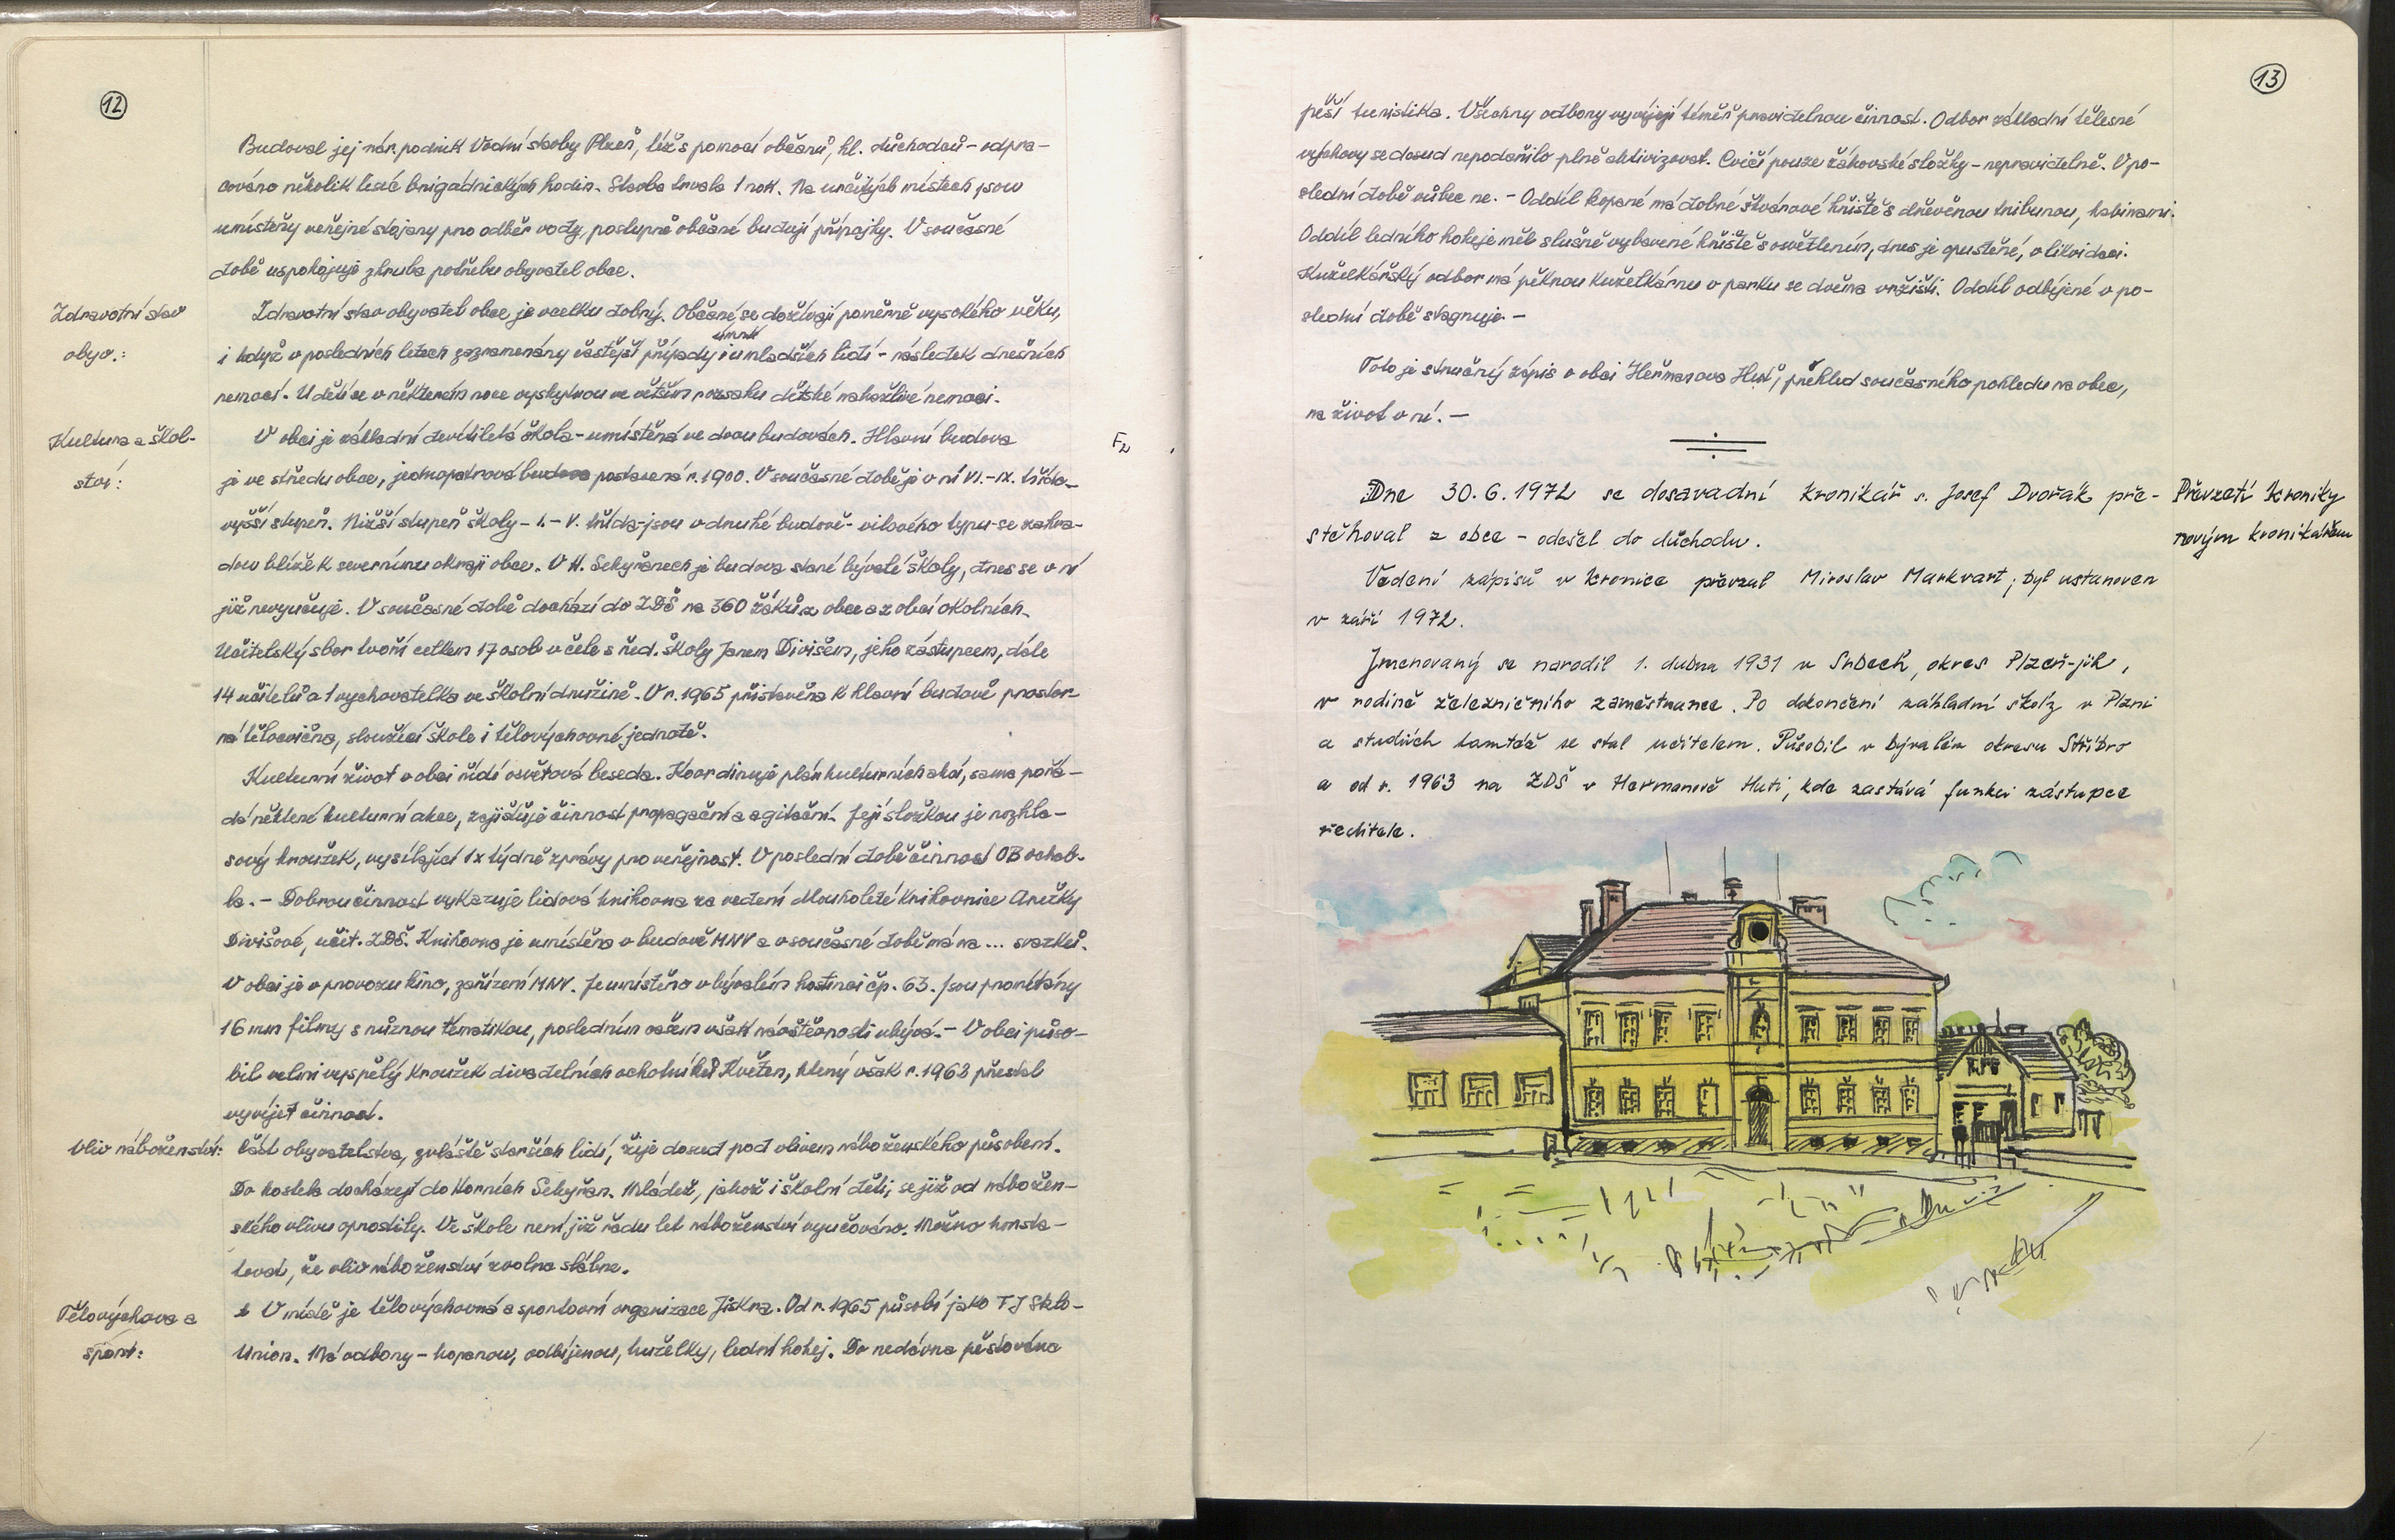 12
Budoval jej nár. podnik Vodní stavby Plzeň, též s pomocí občanů, hl. důchodců - odpra-
cováno několik tisíc brigádnických hodin. Stavba trvala 1 rok. Na určitých místech jsou
umístěny veřejné stojany pro odběr vody, postupně občané budují přípojky. V současné
době uspokojuje zhruba potřebu obyvatel obce.
Zdravotní stav
obyv.:
Zdravotní stav obyvatel obce je vcelku dobrý. Občané se dožívají poměrně vysokého věku,
úmrtí
i když v posledních letech zaznamenány častější případy i u mladších lidí - následek dnešních
nemocí. U dětí se v některém roce vyskytnou ve větším rozsahu dětské nakažlivé nemoci.
Kultura a škol-
ství:
V obci je základní devítiletá škola - umístěná ve dvou budovách. Hlavní budova
je ve středu obce, jednopatrová budova postavená r. 1900. V současné době je v ní VI. - IX. třída -
vyšší stupeň. Nižší stupeň školy - I. - V. třída - jsou v druhé budově - vilového typu - se zahra-
dou blíže k severnímu okraji obce. V H. Sekyřanech je budova staré bývalé školy, dnes se v ní
již nevyučuje. V současné době dochází do ZDŠ na 360 žáků z obce a z obcí okolních.
Učitelský sbor tvoří celkem 17 osob v čele s řed. školy Janem Divišem, jeho zástupcem, dále
14 učitelů a 1 vychovatelka ve školní družině. V r. 1965 přistavěna k hlavní budově prostor-
ná tělocvična, sloužící škole i tělovýchovné jednotě.
Kulturní život v obci řídí osvětová beseda. Koordinuje plán kulturních akcí, sama pořá-
dá některé kulturní akce, zajišťuje činnost propagační a agitační. Její složkou je rozhla-
sový kroužek, vysílající 1x týdně zprávy pro veřejnost. V poslední době činnost OB ochab-
la. - Dobrou činnost vykazuje lidová knihovna za vedení dlouholeté knihovnice Anežky
Divišové, učit. ZDŠ. Knihovna je umístěna v budově MNV a v současné době má na ... svazků.
V obci je v provozu kino, zařízení MNV. Je umístěno v bývalém hostinci čp. 63. Jsou promítány
16 mm filmy s různou tématikou, posledním časem však návštěvnosti ubývá. - V obci půso-
bil velmi vyspělý kroužek divadelních ochotníků Květen, který však r. 1963 přestal
vyvíjet činnost.
Vliv náboženství:
Část obyvatelstva, zvláště starších lidí, žije dosud pod vlivem náboženského působení.
Do kostela docházejí do Horních Sekyřan. Mládež, jakož i školní děti, se již od nábožen-
ského vlivu oprostily. Ve škole není již řadu let náboženství vyučováno. Možno konsta-
tovat, že vliv náboženství zvolna slábne.
Tělovýchova a
sport:
V místě je tělovýchovná a sportovní organizace Jiskra. Od r. 1965 působí jako TJ Sklo-
Union. Má odbory - kopanou, odbíjenou, kuželky, lední hokej. Do nedávna pěstována
13
pěší turistika. Všechny odbory vyvíjejí téměř pravidelnou činnost. Odbor základní tělesné
výchovy se dosud nepodařilo plně aktivizovat. Cvičí pouze žákovské složky - nepravidelně. V po-
slední době vůbec ne. - Oddíl kopané má dobré škvárové hřiště s dřevěnou tribunou, kabinami.
Oddíl ledního hokeje měl slušně vybavené hřiště s osvětlením, dnes je opuštěné, v likvidaci.
Kuželkářský odbor má pěknou kuželkárnu v parku se dvěma vržišti. Oddíl odbíjené v po-
slední době stagnuje. -
Toto je stručný zápis o obci Heřmanova Huť, přehled současného pohledu na obec,
na život v ní. -
Převzetí kroniky
novým kronikářem
Dne 30. 6. 1972 se dosavadní kronikář s. Josef Dvořák pře-
stěhoval z obce - odešel do důchodu.
Vedení zápisů v kronice převzal Miroslav Markvart; byl ustanoven
v září 1972.
Jmenovaný se narodil 1. dubna 1931 v Srbech, okres Plzeň-jih,
v rodině železničního zaměstnance. Po dokončení základní školy v Plzni
a studiích tamtéž se stal učitelem. Působil v bývalém okresu Stříbro
a od r. 1963 na ZDŠ v Heřmanově Huti, kde zastává funkci zástupce
ředitele.